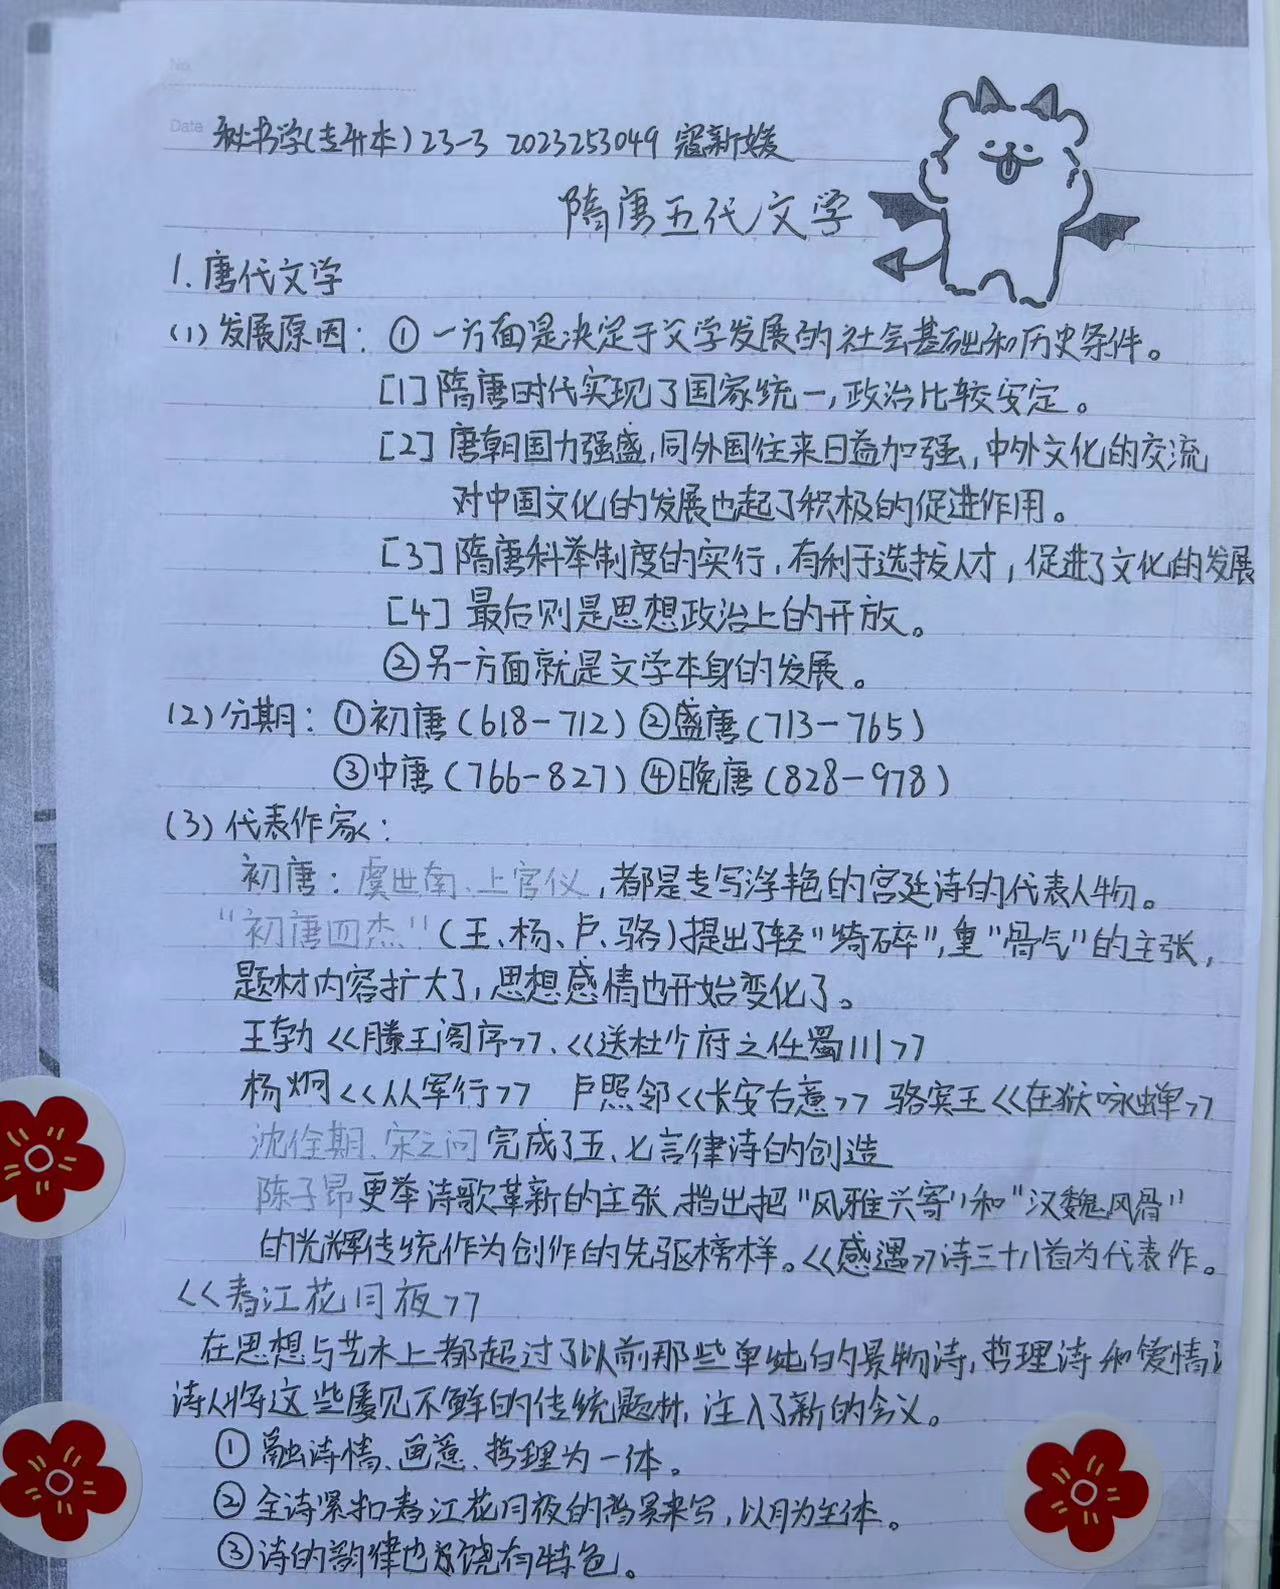 No.
Date 秘书学(专升本)23-3 2023253049 寇新媛
隋唐五代文学
1.唐代文学
(1)发展原因：①一方面是决定于文学发展的社会基础和历史条件。
[1]隋唐时代实现了国家统一,政治比较安定。
[2]唐朝国力强盛,同外国往来日益加强,中外文化的交流
对中国文化的发展也起了积极的促进作用。
[3]隋唐科举制度的实行,有利于选拔人才,促进了文化的发展
[4]最后则是思想政治上的开放。
②另一方面就是文学本身的发展。
(2)分期：①初唐(618-712)②盛唐(713-765)
③中唐(766-827)④晚唐(828-978)
(3)代表作家：
初唐：虞世南、上官仪,都是专写浮艳的宫廷诗的代表人物。
"初唐四杰"(王、杨、卢、骆)提出了轻"绮碎",重"骨气"的主张,
题材内容扩大了,思想感情也开始变化了。
王勃<<滕王阁序>>、<<送杜少府之任蜀川>>
杨炯<<从军行>> 卢照邻<<长安古意>> 骆宾王<<在狱咏蝉>>
沈佺期、宋之问完成了五、七言律诗的创造
陈子昂更举诗歌革新的主张,指出把"风雅兴寄"和"汉魏风骨"
的光辉传统作为创作的先驱榜样。<<感遇>>诗三十八首为代表作。
<<春江花月夜>>
在思想与艺术上都超过了以前那些单纯的景物诗,哲理诗和爱情
诗人将这些屡见不鲜的传统题材,注入了新的含义。
①融诗情、画意、哲理为一体。
②全诗紧扣春江花月夜的背景来写,以月为主体。
③诗的韵律也饶有特色。